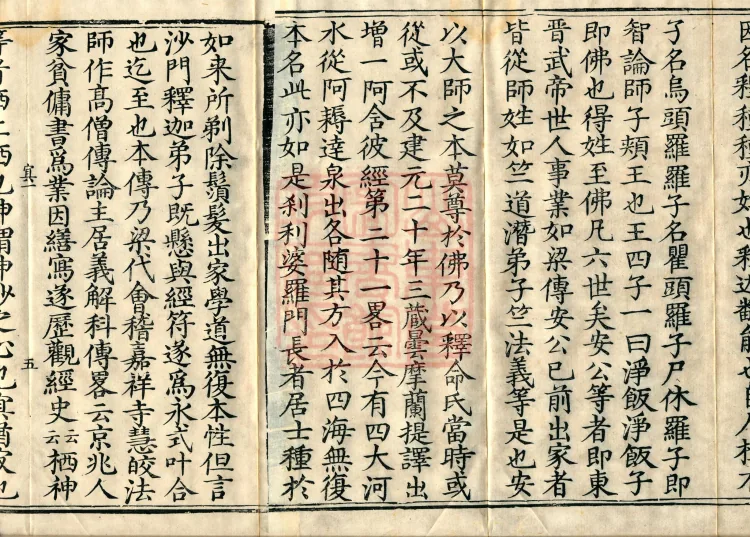 子名烏頭羅羅子名瞿頭羅子尸休羅子即
智論師子頰王也王四子一曰淨飯淨飯子
即佛也得姓至佛凡六世矣安公等者即東
晉武帝世人事業如梁傳安公已前出家者
皆從師姓如竺道潛弟子竺法義等是也安
以大師之本莫尊於佛乃以釋命氏當時或
從或不及建元二十年三藏曇摩蘭提譯出
增一阿舍彼經第二十一畧云今有四大河
水從阿耨達泉出各随其方入於四海無復
本名此亦如是刹利婆羅門長者居士種於
如来所剃除鬚髮出家學道無復本性但言
沙門釋迦弟子既懸與經符遂爲永式叶合
也迄至也本傳乃梁代會稽嘉祥寺慧皎法
師作高僧傳論主居義解科傳畧云京兆人
家貧傭書爲業因繕寫遂歷觀經史云云栖神
五